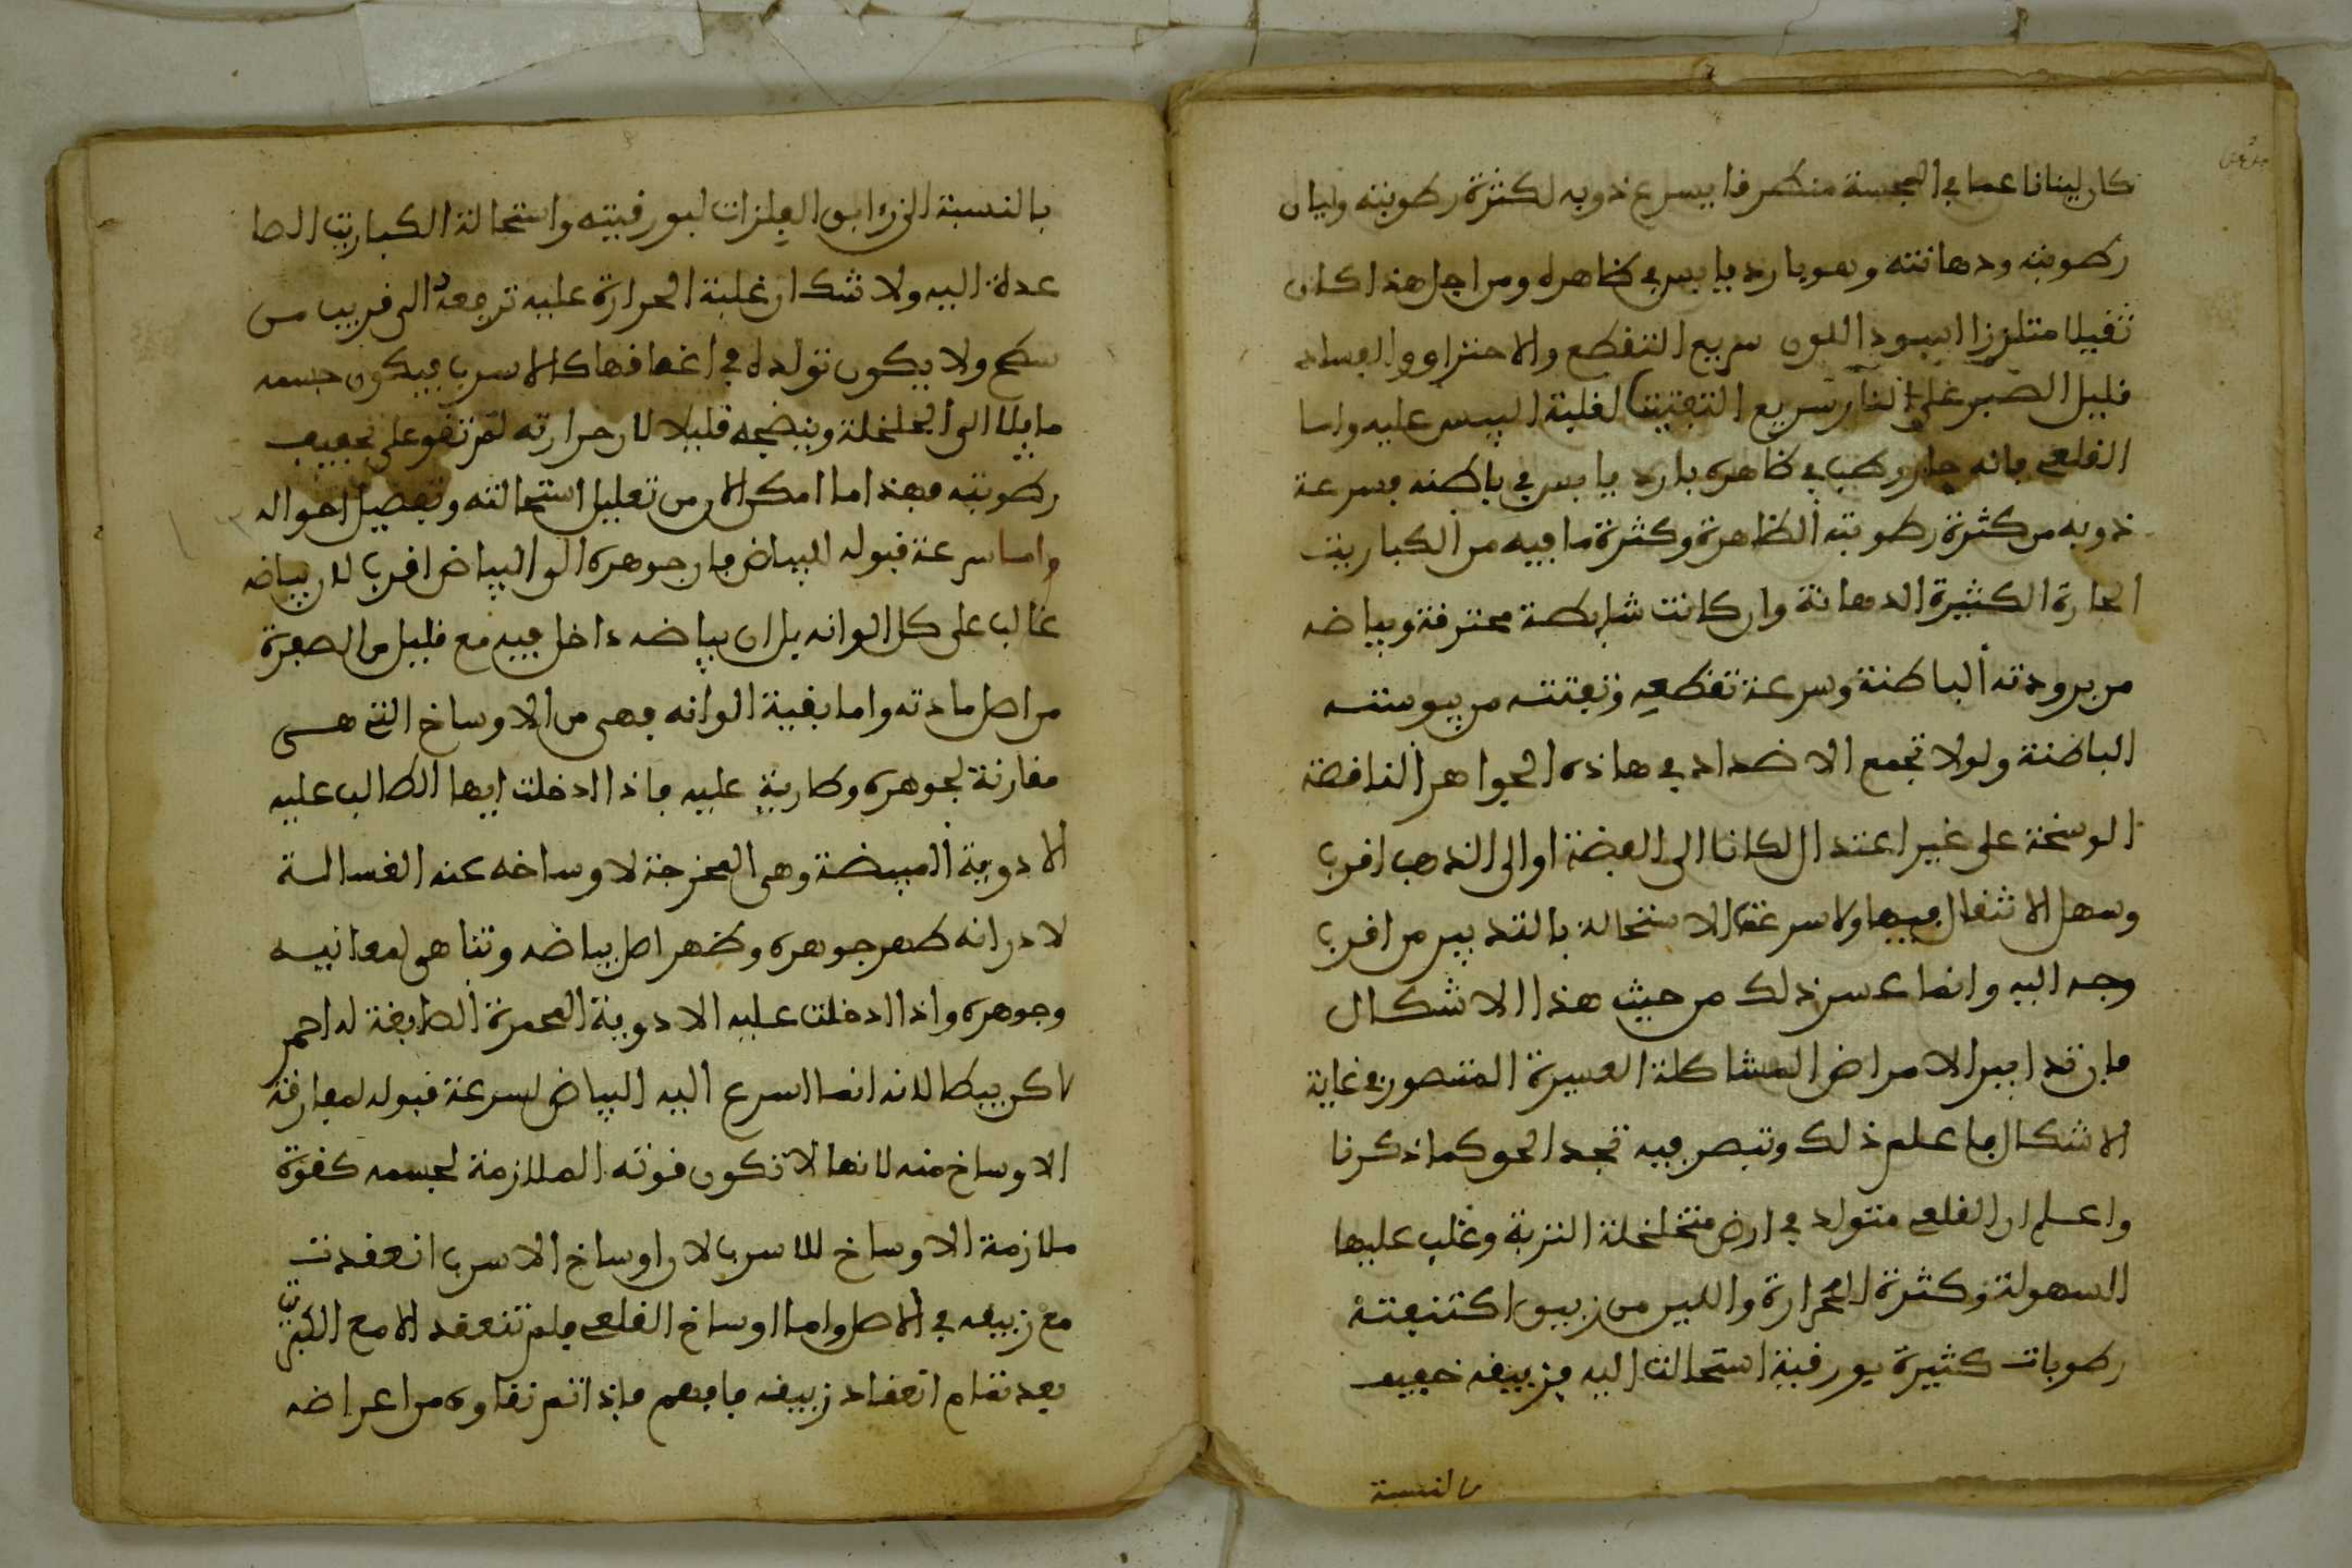 كان لينا ناعما في المجسة منطرفا يسرع ذوبه لكثرة رطوبته وليان
رطوبته ودهانته وهو بارد يابس في ظاهره ومن اجل هذا كان
ثقيلا متلززا اسود اللون سريع التقطع والاحتراق والفساد
قليل الصبر على النار سريع التفتيت لغلبة اليبس عليه واما
القلعي فانه حار رطب في ظاهره بارد يابس في باطنه فسرعة
ذوبه من كثرة رطوبته الظاهرة وكثرة ما فيه من الكباريت
الحارة الكثيرة الدهانة وان كانت شايطة محترقة وبياضه
من برودته الباطنة وسرعة تقطعه وتفتته من يبوسته
الباطنة ولولا تجمع الاضداد في هاذه الجواهر الناقصة
الوسخة على غير اعتدال لكانا الى الفضة او الى الذهب اقرب
وسهل الانتقال فيها ولا سرعة الاستحالة بالتدبير من اقرب
وجه اليه وانما عسر ذلك من حيث هذا الاشكال
فان تدابير الامراض المشاكلة العسيرة المتصور في غاية
الاشكال فاعلم ذلك وتبصر فيه تجد الحق كما ذكرنا
واعلم ان القلعي متولد في ارض متخلخلة التربة وغلب عليها
السهولة وكثرة الحرارة واللين من زيبق اكتنفته
رطوبات كثيرة بورقية استحالت اليه فزيبقه خفيف
بالنسبة
بالنسبة الى زءابق الفلزات لبورقيته واستحالة الكباريت الصا
عدة اليه ولا شك ان غلبة الحرارة عليه ترفعه الى قريب من
سطح ولا يكون تولده في اعماقها كالاسرب فيكون جسمه
مايلا الى الخلخلة وينضجه قليلا لان حرارته لم تقو على تجفيف
رطوبته فهذا ما امكن الان من تعليل استحالته وتفصيل احواله
واما سرعة قبوله البياض فان جوهره الى البياض اقرب لان بياضه
غالب على كل الوانه بل ان بياضه داخل فيه مع قليل من الصفرة
من اصل مادته واما بقية الوانه فهي من الاوساخ التي هي
مقارنة لجوهره وطارية عليه فاذا ادخلت ايها الطالب عليه
الادوية المبيضة وهي المخرجة لاوساخه عنه الغسالة
لادرانه طهر جوهره وظهر اصل بياضه وتناهى لمعانيه
وجوهره واذا ادخلت عليه الادوية المحمرة الصابغة له احمر
لاكن بيطا لانه انما اسرع اليه البياض لسرعة قبوله لمفارقة
الاوساخ منه لانها لا تكون قوته الملازمة لجسمه كقوة
ملازمة الاوساخ للاسرب لان اوساخ الاسرب انعقدت
مع زيبقه في الاصل واما اوساخ القلعي فلم تنعقد الا مع الكبريت
بعد تمام انعقاد زيبقه فافهم فاذا تم نقاوه من اعراضه